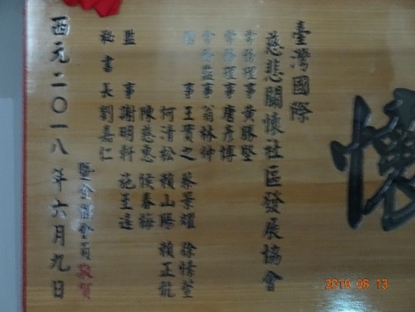 懷
臺灣國際
慈悲關懷社區發展協會
常務理事 黃勝堅
常務理事 唐彥博
常務監事 翁林仲
理事 王貴之 蔡景耀 徐情莹
何清松 賴山勝 賴正龍
陳慈惠 侯春梅
監事 謝明軒 施玉遠
秘書長 劉嘉仁
暨全體會員敬賀
西元二〇一八年六月九日
2018 06 13